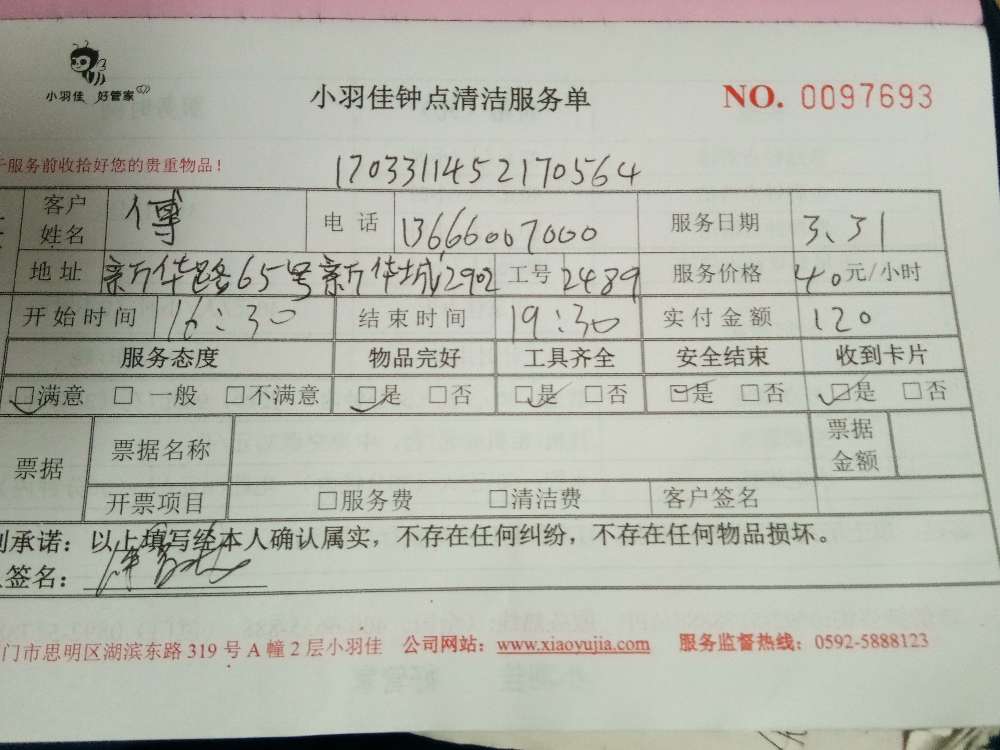 小羽佳 好管家
小羽佳钟点清洁服务单
NO. 0097693
服务前收拾好您的贵重物品！
1703311452170564
客户姓名 傅 电话 13666007000 服务日期 3.31
地址 新华路65号新华城2902 工号 2489 服务价格 40元/小时
开始时间 16:30 结束时间 19:30 实付金额 120
服务态度 物品完好 工具齐全 安全结束 收到卡片
□满意 □一般 □不满意 □是 □否 □是 □否 □是 □否 □是 □否
票据 票据名称 票据金额
开票项目 □服务费 □清洁费 客户签名
承诺：以上填写经本人确认属实，不存在任何纠纷，不存在任何物品损坏。
签名：
门市思明区湖滨东路319号A幢2层小羽佳 公司网站：www.xiaoyujia.com 服务监督热线：0592-5888123